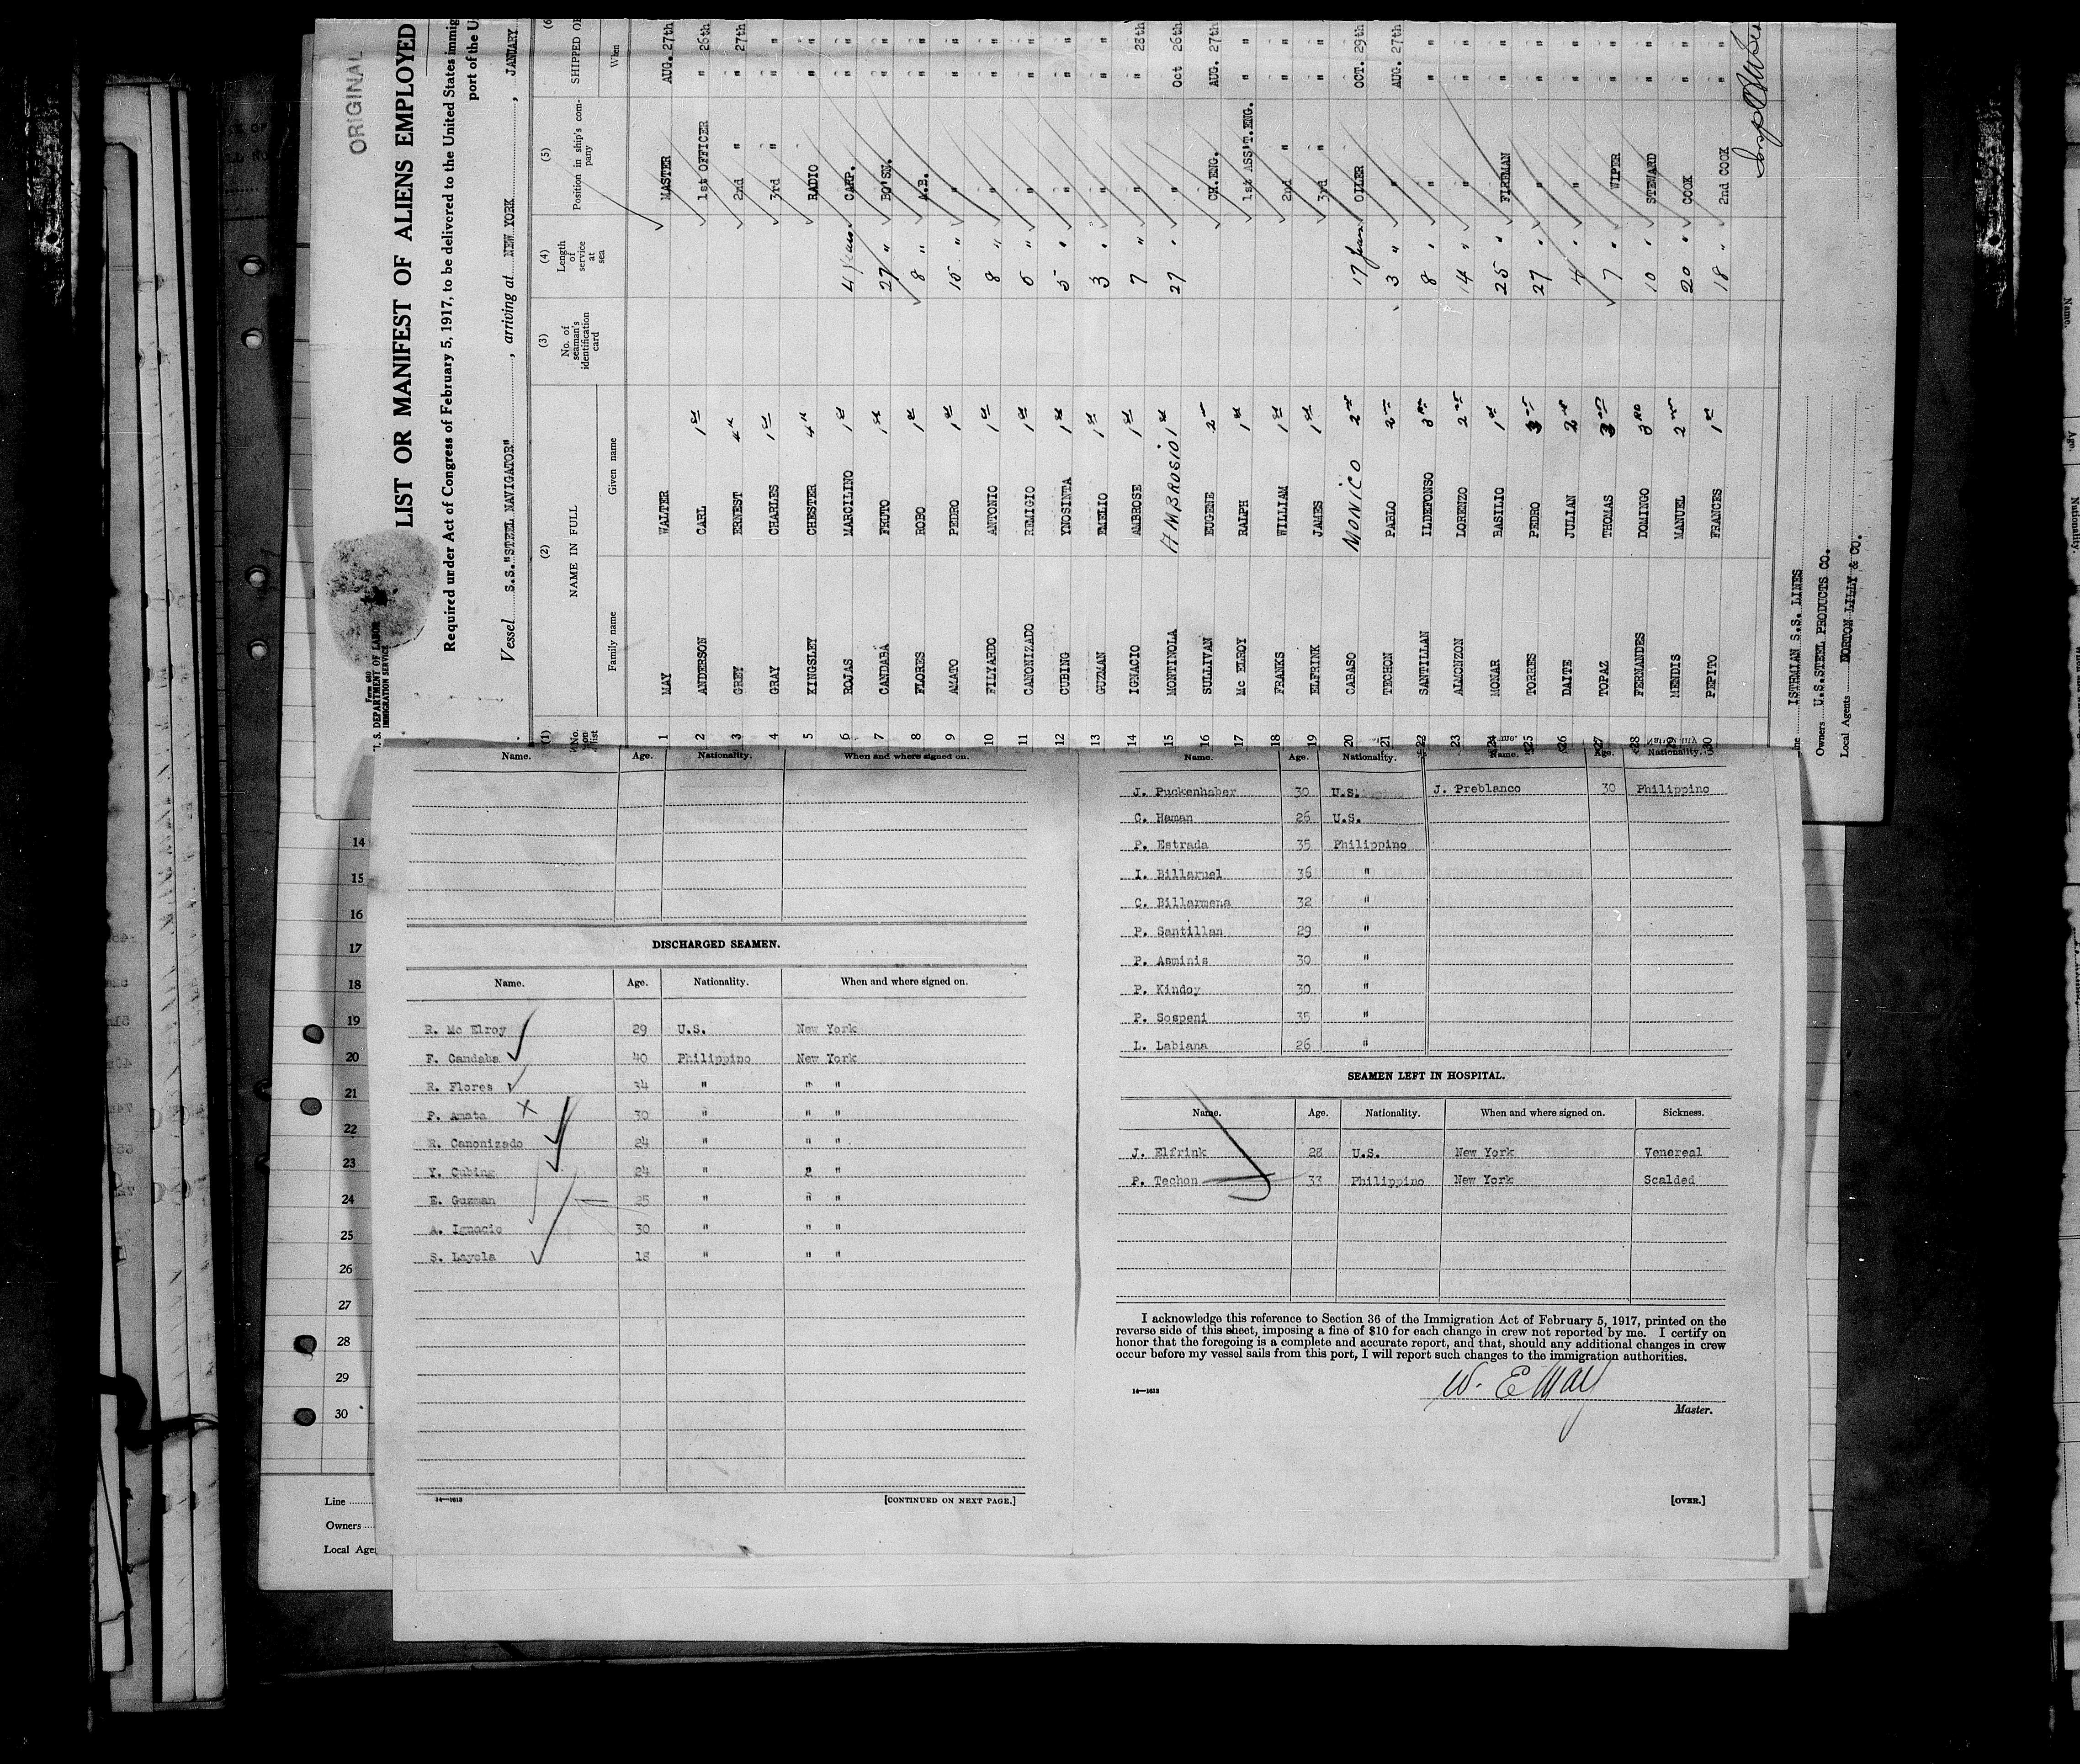 ORIGINAL
Form 680
U. S. DEPARTMENT OF LABOR
IMMIGRATION SERVICE
LIST OR MANIFEST OF ALIENS EMPLOYED
Required under Act of Congress of February 5, 1917, to be delivered to the United States immig
port of the U
Vessel S.S."STEEL NAVIGATOR", arriving at NEW YORK, JANUARY
(1) (2) (3) (4) (5) (6)
No. on list NAME IN FULL No. of seaman's identification card Length of service at sea Position in ship's com- pany SHIPPED OR
Family name Given name When
1 MAY WALTER MASTER AUG. 27th
2 ANDERSON CARL 1st 1st OFFICER " 26th
3 GREY ERNEST 4th 2nd " " 27th
4 GRAY CHARLES 1st 3rd " " "
5 KINGSLEY CHESTER 4th RADIO " "
6 ROJAS MARCILINO 1st 4 years CARP. " "
7 CANDABA FRUTO 1st 27 " BO'SN. " "
8 FLORES ROBO 1st 8 " A.B. " "
9 AMATO PEDRO 1st 15 " " " "
10 FILYARDO ANTONIO 1st 8 " " " "
11 CANONIZADO REMIGIO 1st 6 " " " "
12 CUBING YNOSINTA 1st 5 " " " "
13 GUZMAN EMELIO 1st 3 " " " "
14 IGNACIO AMBROSE 1st 7 " " " 23th
15 MONTINOLA AMBROSIO 1st 27 " " Oct 26th
16 SULLIVAN EUGENE 2nd CH.ENG. AUG. 27th
17 Mc ELROY RALPH 1st 1st ASS'T.ENG. " "
18 FRANKS WILLIAM 1st 2nd " " "
19 ELFRINK JAMES 1st 3rd " " "
20 CABASO MONICO 2nd 17 years OILER OCT. 29th
21 TECHON PABLO 2nd 3 " " AUG. 27th
22 SANTILLAN ILDEFONSO 3rd 8 " " " "
23 ALMONZON LORENZO 2nd 14 " " " "
24 MONAR BASILIO 1st 25 " FIREMAN " "
25 TORRES PEDRO 3rd 27 " " " "
26 DAITE JULIAN 2nd 4 " " " "
27 TOPAZ THOMAS 3rd 7 " WIPER " "
28 FERNANDES DOMINGO 3RD 10 " STEWARD " "
29 MENDIS MANUEL 2nd 20 " COOK " "
30 PEPITO FRANCES 1st 18 " 2nd COOK " "
ISTHMIAN S.S. LINES
Owners U.S.STEEL PRODUCTS CO.
Local Agents NORTON LILLY & CO.
Name. Age. Nationality. When and where signed on.
DISCHARGED SEAMEN.
Name. Age. Nationality. When and where signed on.
R. Mc Elroy 29 U.S. New York
F. Candaba 40 Philippino New York
R. Flores 34 " " "
P. Amato 30 " " "
R. Canonizado 24 " " "
Y. Cubing 24 " " "
E. Guzman 25 " " "
A. Ignacio 30 " " "
S. Layola 18 " " "
14—1613
[CONTINUED ON NEXT PAGE.]
Name. Age. Nationality. Name. Age. Nationality.
J. Puckenhaber 30 U.S. J. Preblanco 30 Philippino
C. Haman 26 U.S.
P. Estrada 35 Philippino
I. Billaruel 36 "
C. Billarmena 32 "
P. Santillan 29 "
P. Asminis 30 "
P. Kindoy 30 "
P. Sospeni 35 "
L. Labiana 26 "
SEAMEN LEFT IN HOSPITAL.
Name. Age. Nationality. When and where signed on. Sickness.
J. Elfrink 28 U.S. New York Venereal
P. Techon 33 Philippino New York Scalded
I acknowledge this reference to Section 36 of the Immigration Act of February 5, 1917, printed on the
reverse side of this sheet, imposing a fine of $10 for each change in crew not reported by me. I certify on
honor that the foregoing is a complete and accurate report, and that, should any additional changes in crew
occur before my vessel sails from this port, I will report such changes to the immigration authorities.
W. E May
14—1613
Master.
[OVER.]
14
15
16
17
18
19
20
21
22
23
24
25
26
27
28
29
30
Line
Owners
Local Age